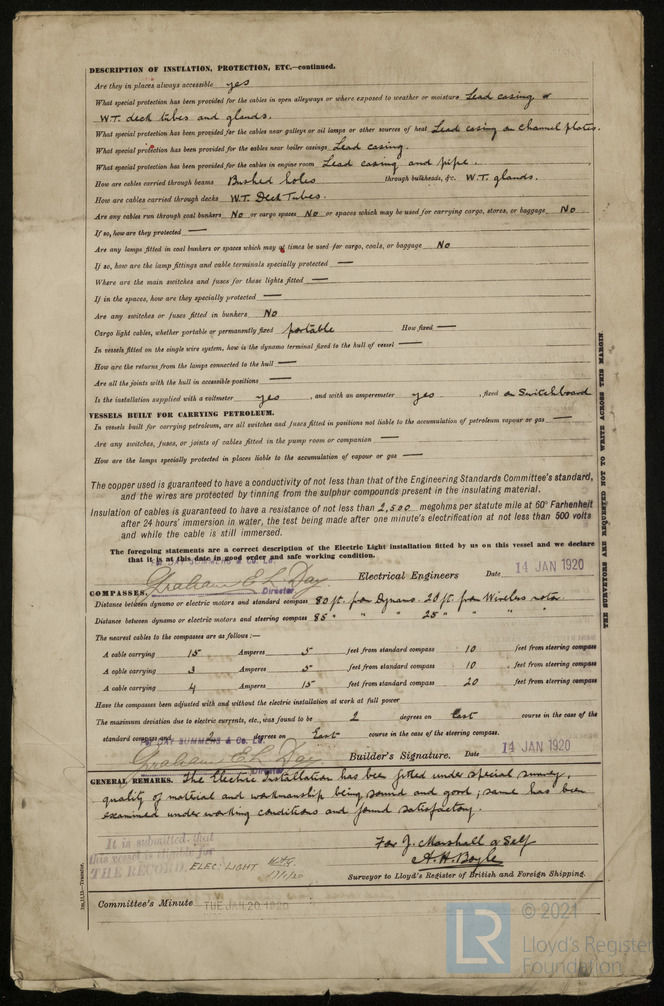 DESCRIPTION OF INSULATION, PROTECTION, ETC.—continued.
Are they in places always accessible yes
What special protection has been provided for the cables in open alleyways or where exposed to weather or moisture Lead casing &
W.T. deck tubes and glands.
What special protection has been provided for the cables near galleys or oil lamps or other sources of heat Lead casing on channel plates.
What special protection has been provided for the cables near boiler casings Lead casing.
What special protection has been provided for the cables in engine room Lead casing and pipe.
How are cables carried through beams Bushed holes through bulkheads, &c. W.T. glands.
How are cables carried through decks W.T. Deck Tubes.
Are any cables run through coal bunkers No or cargo spaces No or spaces which may be used for carrying cargo, stores, or baggage No
If so, how are they protected —
Are any lamps fitted in coal bunkers or spaces which may at times be used for cargo, coals, or baggage No
If so, how are the lamp fittings and cable terminals specially protected —
Where are the main switches and fuses for these lights fitted —
If in the spaces, how are they specially protected —
Are any switches or fuses fitted in bunkers No
Cargo light cables, whether portable or permanently fixed portable How fixed —
In vessels fitted on the single wire system, how is the dynamo terminal fixed to the hull of vessel —
How are the returns from the lamps connected to the hull —
Are all the joints with the hull in accessible positions —
Is the installation supplied with a voltmeter yes, and with an amperemeter yes, fixed on Switchboard
VESSELS BUILT FOR CARRYING PETROLEUM.
In vessels built for carrying petroleum, are all switches and fuses fitted in positions not liable to the accumulation of petroleum vapour or gas —
Are any switches, fuses, or joints of cables fitted in the pump room or companion —
How are the lamps specially protected in places liable to the accumulation of vapour or gas —
The copper used is guaranteed to have a conductivity of not less than that of the Engineering Standards Committee's standard,
and the wires are protected by tinning from the sulphur compounds present in the insulating material.
Insulation of cables is guaranteed to have a resistance of not less than 2,500 megohms per statute mile at 60° Farhenheit
after 24 hours' immersion in water, the test being made after one minute's electrification at not less than 500 volts
and while the cable is still immersed.
The foregoing statements are a correct description of the Electric Light installation fitted by us on this vessel and we declare
that it is at this date in good order and safe working condition.
DAY SUMMERS & Co. Ld.
Graham E. L. Day Electrical Engineers Date 14 JAN 1920
Director
COMPASSES.
Distance between dynamo or electric motors and standard compass 80 ft. from Dynamo. 20 ft. from Wireless motor.
Distance between dynamo or electric motors and steering compass 85 " " " 25 " " " "
The nearest cables to the compasses are as follows:—
A cable carrying 15 Amperes 5 feet from standard compass 10 feet from steering compass
A cable carrying 3 Amperes 5 feet from standard compass 10 feet from steering compass
A cable carrying 4 Amperes 15 feet from standard compass 20 feet from steering compass
Have the compasses been adjusted with and without the electric installation at work at full power
The maximum deviation due to electric currents, etc., was found to be 2 degrees on East course in the case of the
standard compass and 2 degrees on East course in the case of the steering compass.
For DAY SUMMERS & Co. Ld.
Graham E. L. Day Builder's Signature. Date 14 JAN 1920
Director
GENERAL REMARKS. The Electric Installation has been fitted under special survey,
quality of material and workmanship being sound and good; same has been
examined under working conditions and found satisfactory.
It is submitted that
this vessel is eligible for
THE RECORD. ELEC: LIGHT
For J. Marshall & Self
A. H. Boyle
Surveyor to Lloyd's Register of British and Foreign Shipping.
Committee's Minute TUE. JAN. 20 1920
THE SURVEYORS ARE REQUESTED NOT TO WRITE ACROSS THIS MARGIN.
LR
© 2021
Lloyd's Register
Foundation